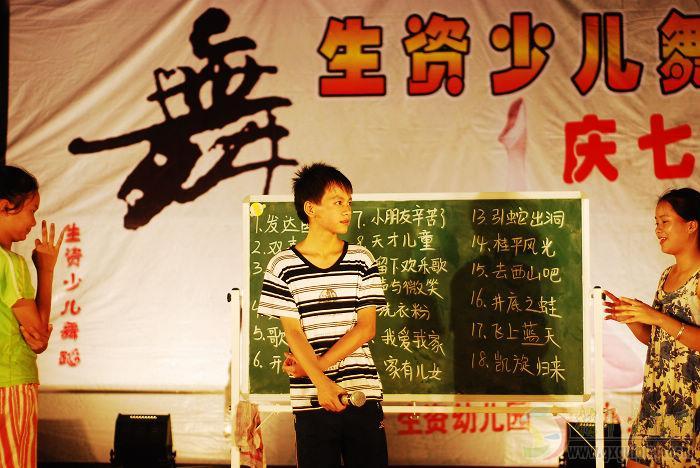 舞
生资少儿舞
庆七
生资少儿舞蹈
1.发达
2.双
3.
5.歌
6.开
7.小朋友辛苦了
8.天才儿童
留下欢乐歌
与微笑
洗衣粉
我爱我家
家有儿女
13.引蛇出洞
14.桂平风光
15.去西山吧
16.井底之蛙
17.飞上蓝天
18.凯旋归来
生资幼儿园